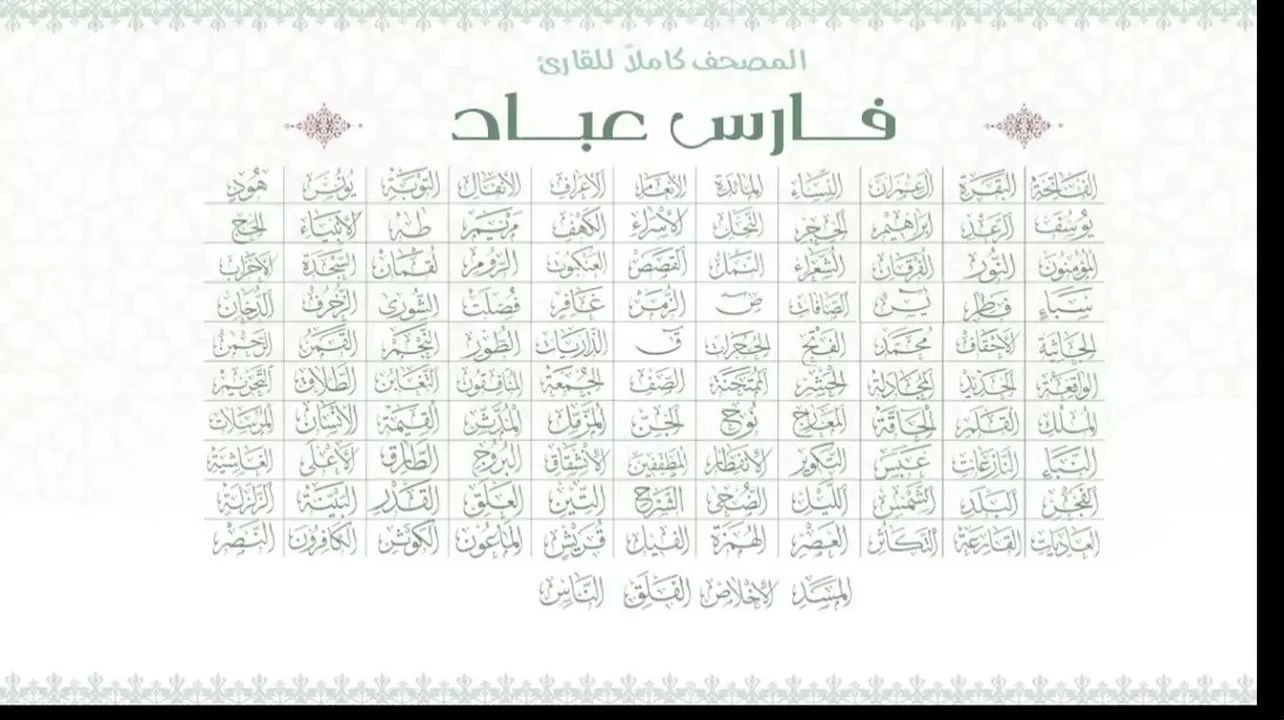 المصحف كاملاً للقارئ
فارس عباد
الفاتحة البقرة آل عمران النساء المائدة الأنعام الأعراف الأنفال التوبة يونس هود
يوسف الرعد إبراهيم الحجر النحل الإسراء الكهف مريم طه الأنبياء الحج
المؤمنون النور الفرقان الشعراء النمل القصص العنكبوت الروم لقمان السجدة الأحزاب
سبأ فاطر يس الصافات ص الزمر غافر فصلت الشورى الزخرف الدخان
الجاثية الأحقاف محمد الفتح الحجرات ق الذاريات الطور النجم القمر الرحمن
الواقعة الحديد المجادلة الحشر الممتحنة الصف الجمعة المنافقون التغابن الطلاق التحريم
الملك القلم الحاقة المعارج نوح الجن المزمل المدثر القيمة الإنسان المرسلات
النبأ النازعات عبس التكوير الانفطار المطففين الانشقاق البروج الطارق الأعلى الغاشية
الفجر البلد الشمس الليل الضحى الشرح التين العلق القدر البينة الزلزلة
العاديات القارعة التكاثر العصر الهمزة الفيل قريش الماعون الكوثر الكافرون النصر
المسد الإخلاص الفلق الناس